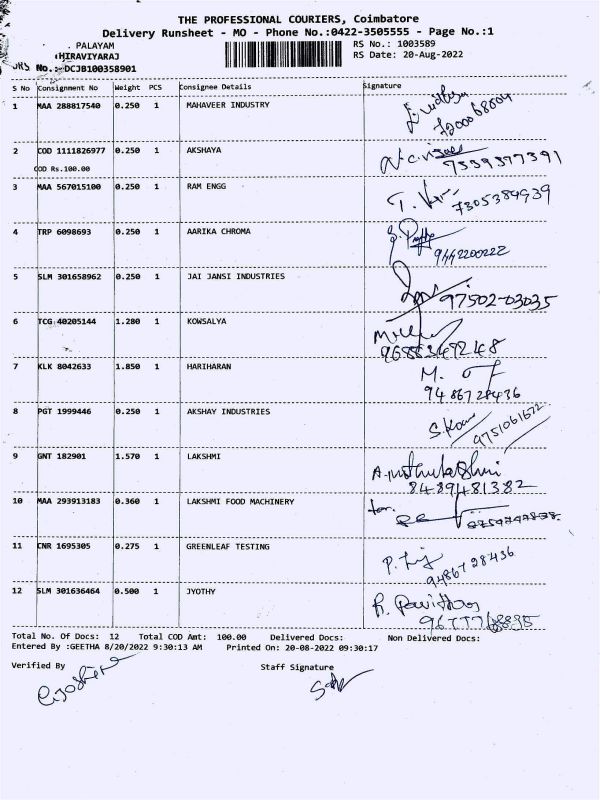 THE PROFESSIONAL COURIERS, Coimbatore
Delivery Runsheet - MO - Phone No.:0422-3505555 - Page No.:1
PALAYAM
RS No.: 1003589
HIRAVIYARAJ
RS Date: 20-Aug-2022
DRS No.:-DCJB100358901
S No Consignment No Weight PCS Consignee Details Signature
1 MAA 288817540 0.250 1 MAHAVEER INDUSTRY
2 COD 1111826977 0.250 1 AKSHAYA
COD Rs.100.00
9539377391
3 MAA 567015100 0.250 1 RAM ENGG
7305384939
4 TRP 6098693 0.250 1 AARIKA CHROMA
9442200222
5 SLM 301658962 0.250 1 JAI JANSI INDUSTRIES
97502-03035
6 TCG 40205144 1.280 1 KOWSALYA
7 KLK 8042633 1.850 1 HARIHARAN
M.
9486728436
8 PGT 1999446 0.250 1 AKSHAY INDUSTRIES
9751061672
9 GNT 182901 1.570 1 LAKSHMI
8489481382
10 MAA 293913183 0.360 1 LAKSHMI FOOD MACHINERY
11 CNR 1695305 0.275 1 GREENLEAF TESTING
9486728436
12 SLM 301636464 0.500 1 JYOTHY
Total No. Of Docs: 12 Total COD Amt: 100.00 Delivered Docs: Non Delivered Docs:
Entered By :GEETHA 8/20/2022 9:30:13 AM Printed On: 20-08-2022 09:30:17
Verified By Staff Signature